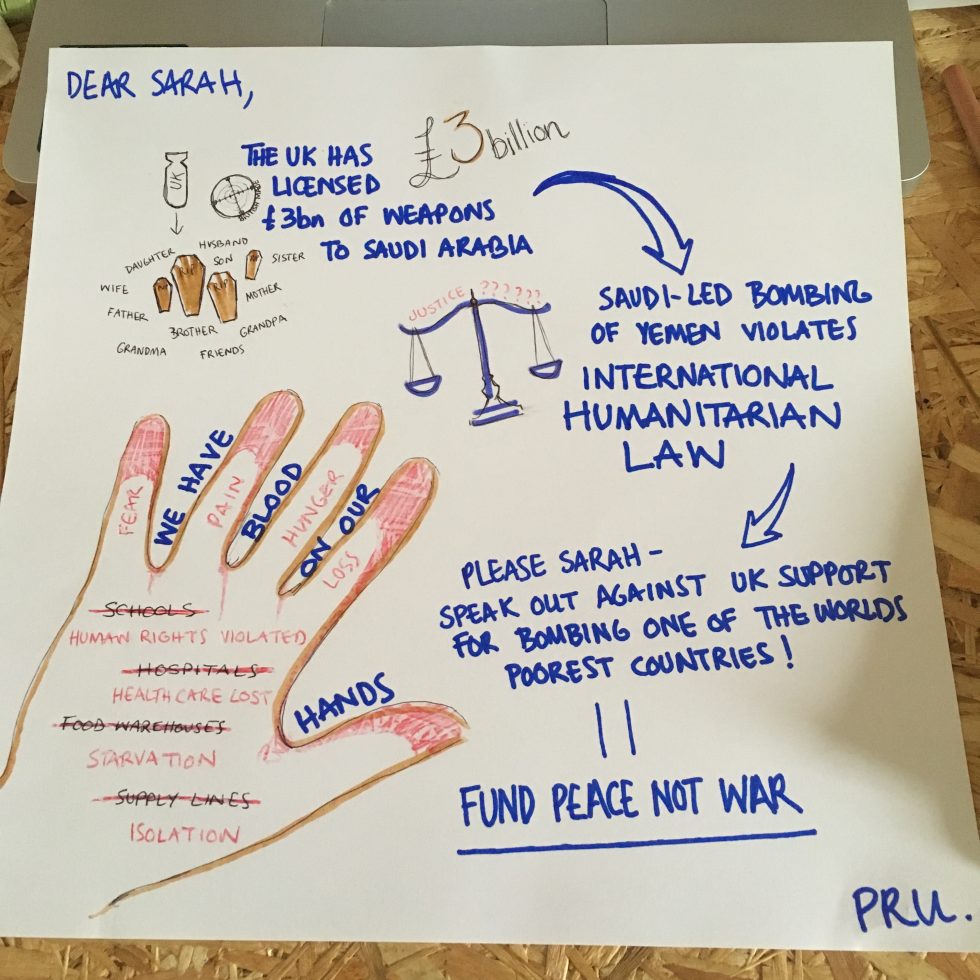 DEAR SARAH,
£3 billion
THE UK HAS
LICENSED
£3bn OF WEAPONS
TO SAUDI ARABIA
UK
HUSBAND
DAUGHTER
SON
SISTER
WIFE
MOTHER
FATHER
BROTHER
GRANDPA
GRANDMA
FRIENDS
RIP
RIP
JUSTICE ??????
SAUDI-LED BOMBING
OF YEMEN VIOLATES
INTERNATIONAL
HUMANITARIAN
LAW
WE HAVE
BLOOD
ON OUR
HANDS
FEAR
PAIN
HUNGER
LOSS
SCHOOLS
HUMAN RIGHTS VIOLATED
HOSPITALS
HEALTHCARE LOST
FOOD WAREHOUSES
STARVATION
SUPPLY LINES
ISOLATION
PLEASE SARAH -
SPEAK OUT AGAINST UK SUPPORT
FOR BOMBING ONE OF THE WORLDS
POOREST COUNTRIES!
FUND PEACE NOT WAR
PRU.